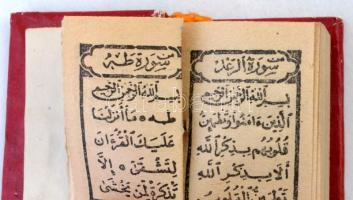 سورة الرعد
بسم الله الرحمن الرحيم
الذين ءامنوا وتطمئن
قلوبهم بذكر الله
ألا بذكر الله
تطمئن القلوب
سورة طه
الله الرحمن الرحيم
طه ما أنزلنا
عليك القرءان
لتشقى إلا
تذكرة لمن يخشى